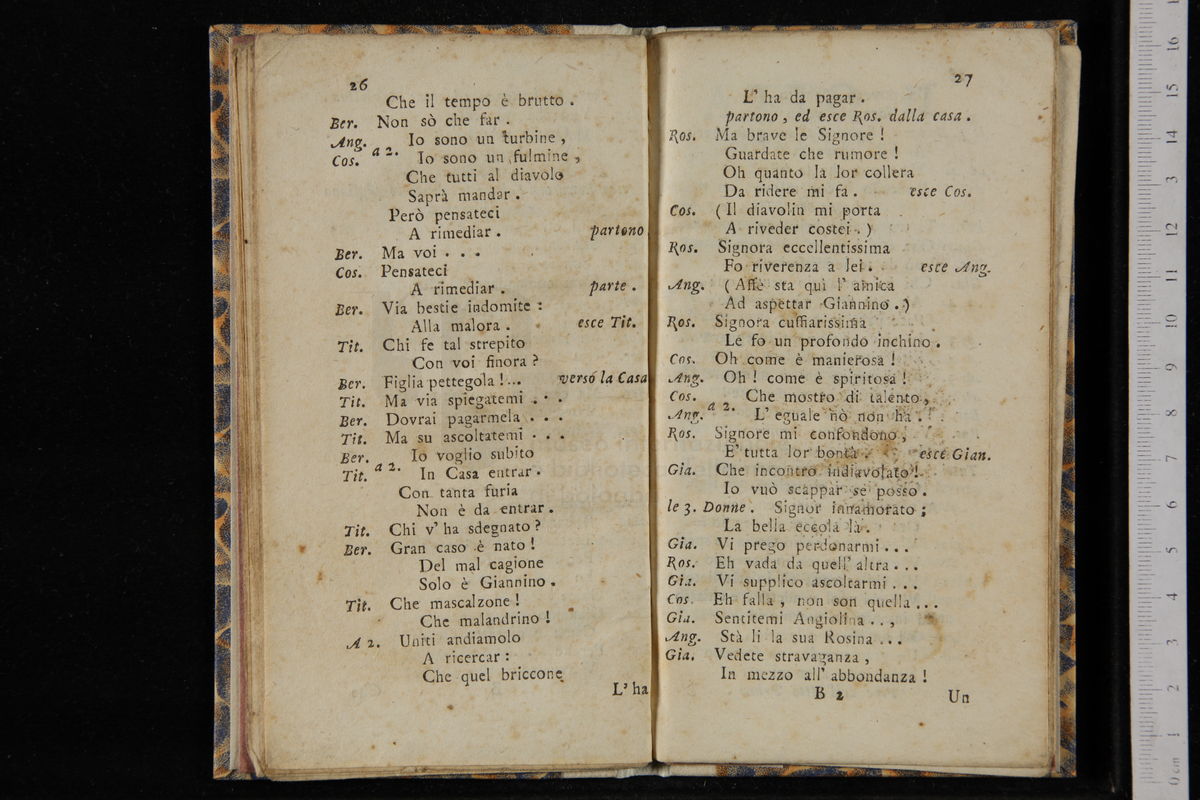 26
Che il tempo è brutto .
Ber. Non sò che far .
Ang. a 2. Io sono un turbine ,
Cos. Io sono un fulmine ,
Che tutti al diavolo
Saprà mandar .
Però pensateci
A rimediar . partono
Ber. Ma voi . . .
Cos. Pensateci
A rimediar . parte .
Ber. Via bestie indomite :
Alla malora . esce Tit.
Tit. Chi fe tal strepito
Con voi finora ?
Ber. Figlia pettegola ! ... verso la Casa
Tit. Ma via spiegatemi . . .
Ber. Dovrai pagarmela . . .
Tit. Ma su ascoltatemi . . .
Ber. a 2. Io voglio subito
Tit. In Casa entrar .
Con tanta furia
Non è da entrar .
Tit. Chi v' ha sdegnato ?
Ber. Gran caso è nato !
Del mal cagione
Solo è Giannino .
Tit. Che mascalzone !
Che malandrino !
A 2. Uniti andiamolo
A ricercar :
Che quel briccone
L' ha
27
L' ha da pagar .
partono , ed esce Ros. dalla casa .
Ros. Ma brave le Signore !
Guardate che rumore !
Oh quanto la lor collera
Da ridere mi fa . esce Cos.
Cos. ( Il diavolin mi porta
A riveder costei . )
Ros. Signora eccellentissima
Fo riverenza a lei . esce Ang.
Ang. ( Affè sta quì l' amica
Ad aspettar Giannino . )
Ros. Signora cuffiarissima
Le fo un profondo inchino .
Cos. Oh come è manierosa !
Ang. Oh ! come è spiritosa !
Cos. a 2. Che mostro di talento ,
Ang. L' eguale nò non ha .
Ros. Signore mi confondono ,
E' tutta lor bontà . esce Gian.
Gia. Che incontro indiavolato !
Io vuò scappar se posso .
le 3. Donne . Signor innamorato ;
La bella eccola là .
Gia. Vi prego perdonarmi . . .
Ros. Eh vada da quell' altra . . .
Gia. Vi supplico ascoltarmi . . .
Cos. Eh falla , non son quella . . .
Gia. Sentitemi Angiolina . . ,
Ang. Stà lì la sua Rosina . . .
Gia. Vedete stravaganza ,
In mezzo all' abbondanza !
B 2 Un
16
15
14
13
12
11
10
9
8
7
6
5
4
3
2
1
0 cm